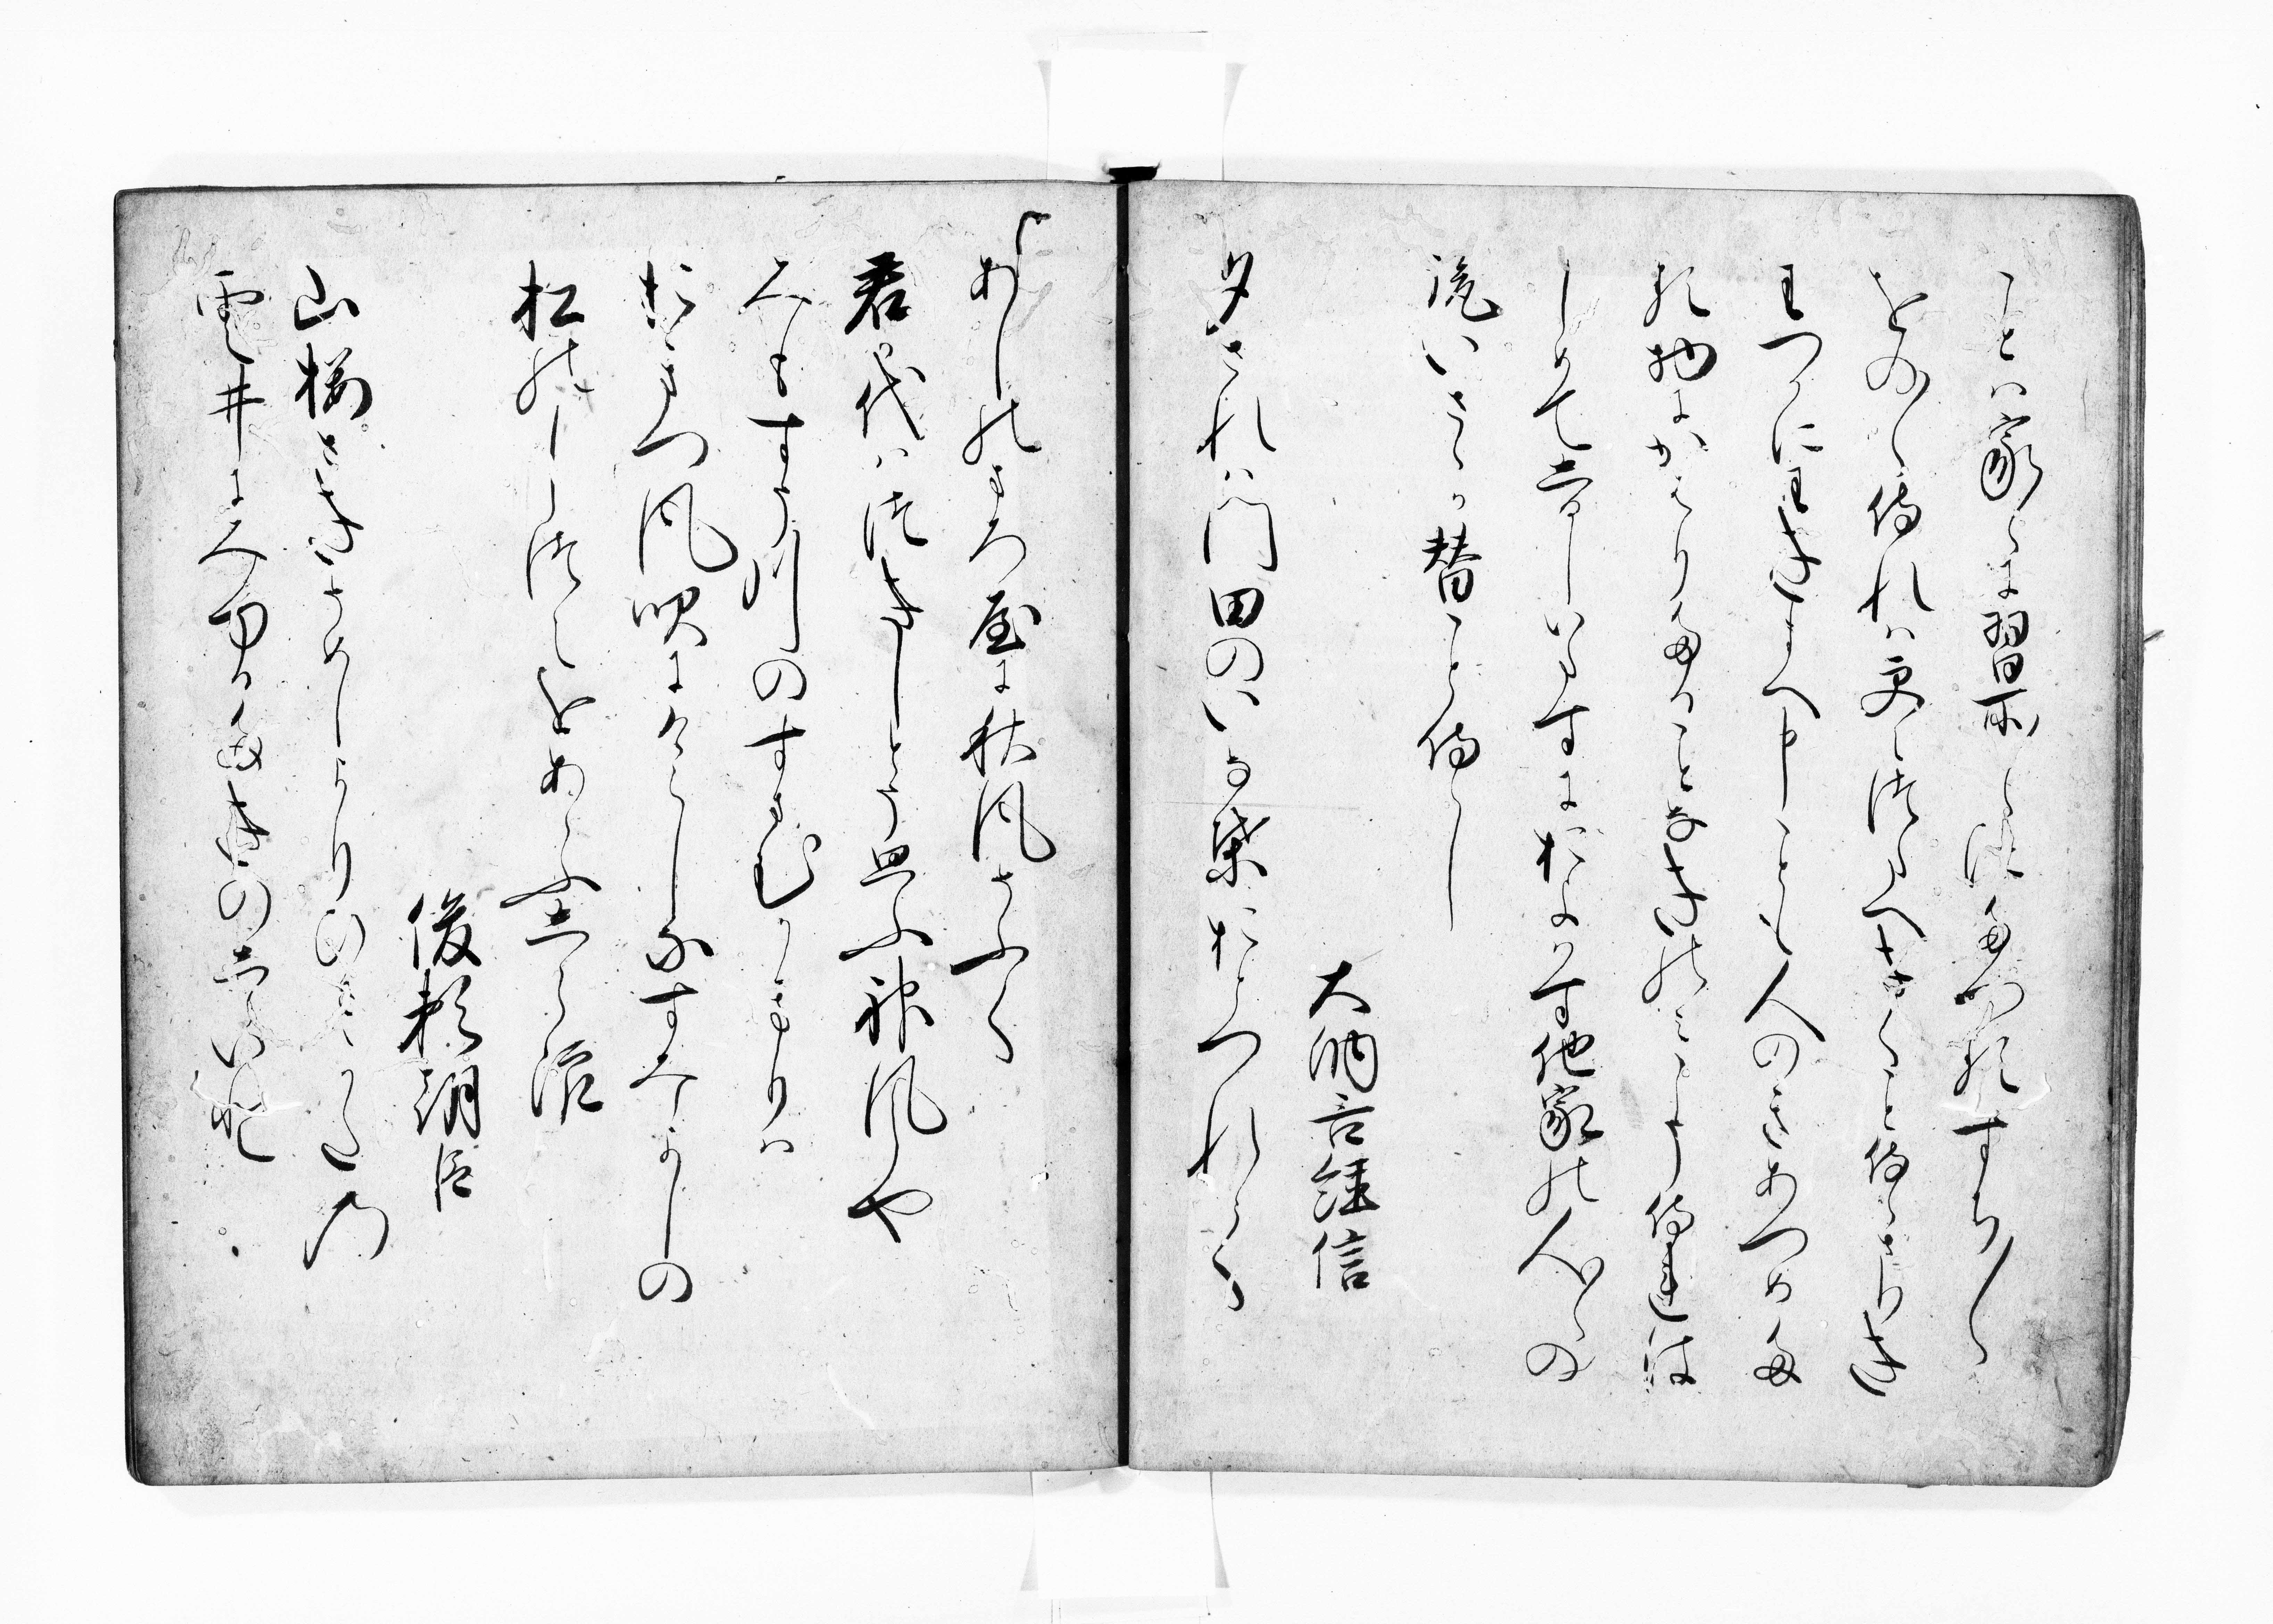 ことは家々に習所々に すち〱
をの〱侍れは更につたへきくこと侍らさりき
わつかにわきまへ申ことも人のかきあつめた
る物にかはりたることなきのみこそ侍れは
しめてしるしいたすにおよはす他家の人々の
説いさゝか替こと侍らし
大納言経信
夕されは門田のいな葉おとつれて
あしのまろ屋に秋風そふく
君か代はつきしとそ思ふ神風や
みもすそ川のすまむかきりは
おきつ風吹にけらしなすみよしの
松のしつえをあらふしら浪
俊頼朝臣
山桜さきそめしよりひさかたの
雲井にみゆるたきのしらいと